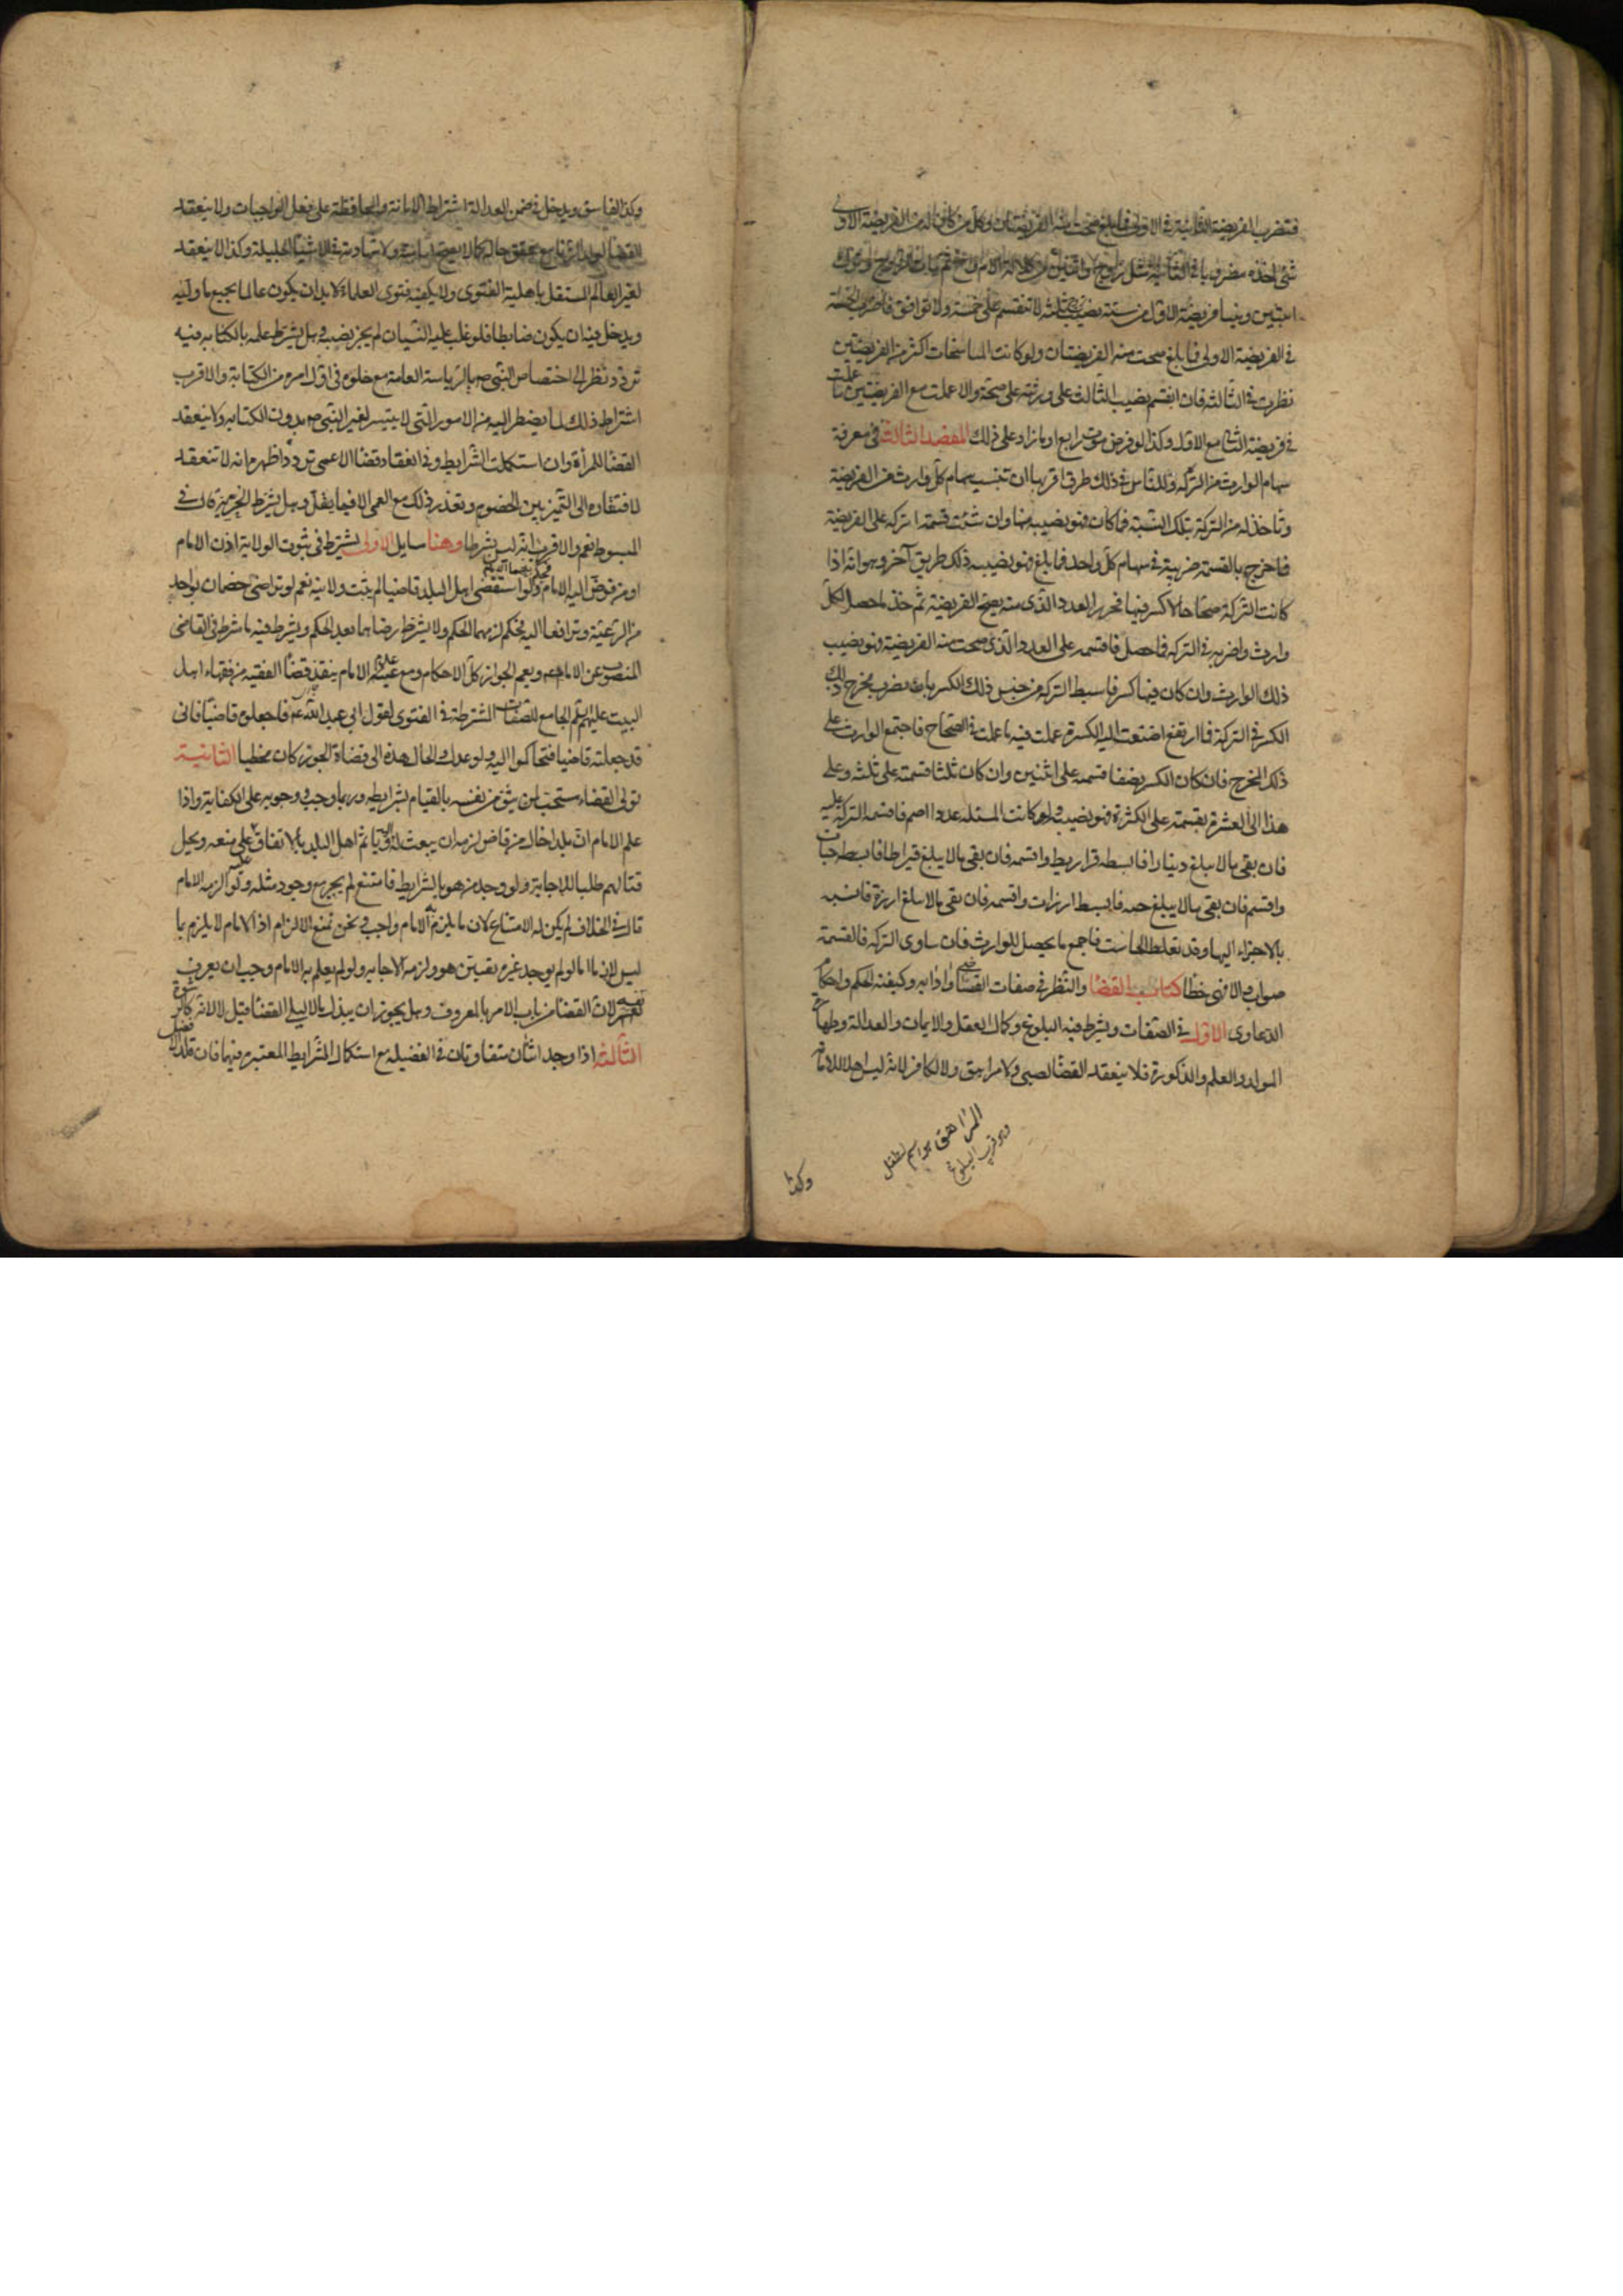 فتضرب الفريضة الثانية في الاولى فما بلغ صحت منه الفريضتان وكل من كان له من الفريضة الاولى
شئ اخذه مضروبا في الثانية مثل زوج واثنين من كلالة الام واخ ثم مات الزوج وترك
ابنين وبنتا فريضة الاول من ستة نصيب الزوج ثلثه لا تنقسم على خمسة ولا توافق فاضرب الخمسة
في الفريضة الاولى فما بلغ صحت منه الفريضتان ولو كانت المناسخات اكثر من الفريضتين
نظرت في الثالثه فان انقسم نصيب الثالث على ورثته على صحة والا عملت مع الفريضتين ما عملت
في فريضة الثاني مع الاول وكذا لو فرض موت رابع او ما زاد على ذلك المقصد الثالث في معرفة
سهام الوارث من التركه وللناس في ذلك طرق اقربها ان تنسب سهام كل وارث من الفريضة
وتاخذ له من التركة بتلك النسبة فما كان فهو نصيبه منها وان شئت قسمة التركه على الفريضة
فما خرج بالقسمة ضربته في سهام كل واحد فما بلغ فهو نصيبه ذلك طريق آخر وهو انه اذا
كانت التركة صحاحا لا كسر فيها فحرر العدد الذي منه يصح الفريضة ثم خذ ما حصل لكل
وارث واضربه في التركه فما حصل فاقسمه على العدد الذي صحت منه الفريضة فهو نصيب
ذلك الوارث وان كان فيها كسر فابسط التركه من جنس ذلك الكسر بان تضرب مخرج ذلك
الكسر في التركه فما ارتفع اضفت اليه الكسر و عملت فيه ما عملت في الصحاح فما اجتمع للوارث على
ذلك المخرج فان كان الكسر نصفا قسمته على اثنين وان كان ثلثا قسمته على ثلثه وعلى
هذا الى العشرة بقسمته على الكثرة فهو نصيبه ولو كانت المسئله عددا اصم فاقسم التركه عليه
فان بقى ما لا يبلغ دينارا فابسطه قراريط واقسمه فان بقى ما لا يبلغ قيراطا فابسطه حبات
واقسم فان بقى ما لا يبلغ حبه فابسط ارزات واقسمه فان بقى ما لا يبلغ ارزة فانسبه
بالاجزاء اليها وقد تغلط الحاسب فاجمع ما يحصل للوارث فان ساوى التركه فالقسمة
صواب والا فهى خطأ كتاب القضا والنظر في صفات القاضي وادابه وكيفية الحكم واحكام
الدعاوى الاول في الصفات ويشترط فيه البلوغ وكمال العقل والايمان والعدالة وطهارة
المولد والعلم والذكورة فلا ينعقد القضا لصبي ولا مراهق ولا لكافر لانه ليس اهلا للامانة
المراهق هو اسم لطفل
وهو قريب البلوغ
وكذا
وكذا الفاسق ويدخل في ضمن العدالة اشتراط الامانة والمحافظة على فعل الواجبات ولا ينعقد
القضا لولد الزنا مع تحقق حاله كما لا يصح امامته ولا شهادته في الاشياء الجليلة وكذا لا ينعقد
لغير العالم المستقل باهلية الفتوى ولا يكفيه فتوى العلماء ولا بد ان يكون عالما بجميع ما وليه
ويدخل فيه ان يكون ضابطا فلو غلب عليه النسيان لم يجز نصبه وهل يشترط علمه بالكتابه فيه
تردد نظرا الى اختصاص النبي ص بالرياسة العامة مع خلوه في اول امره من الكتابة والاقرب
اشتراط ذلك لما يضطر اليه من الامور التي لا يتيسر لغير النبي ص بدون الكتابه ولا ينعقد
القضا للمرأة وان استكملت الشرايط وفي انعقاد قضا الاعمى تردد اظهره انه لا تنعقد
لافتقاره الى التميز بين الخضوم وتعذر ذلك مع العمى الا فيما يقل وهل يشترط الحرية قال في
المبسوط نعم والاقرب انه ليس بشرط وهنا سايل الاولى يشترط في ثبوت الولاية اذن الامام
او من فوض اليه الامام ولو استقضى اهل البلد قاضيا لم يثبت ولايته نعم لو تراضى خصمان بواحد
من الرعية وترافعا اليه فحكم لزمهما الحكم ولا يشترط رضاهما بعد الحكم ويشترط فيه ما شرط في القاضي
المنصوب عن الامام ع ويعم الجواز كل الاحكام ومع غيبة الامام ينفذ قضا الفقيه من فقهاء اهل
البيت عليهم الجامع للصفات الشترطة في الفتوى لقول ابي عبدالله ع فاجعلوه قاضيا فاني
قد جعلته قاضيا فتحاكموا اليه ولو عدل والحال هذه الى قضاة الجور كان مخطيا الثانية
تولى القضاء مستحب لمن يثق من نفسه بالقيام بشرايطه وربما وجب ووجوبه على الكفاية واذا
علم الامام ان بلدا خال من قاض لزمه ان يبعث له وياثم اهل البلد بالاتفاق على منعه ويحل
قتالهم طلبا للاجابة ولو وجد من هو بالشرايط فامتنع لم يجبر مع وجود مثله ولو الزمه الامام
قال في الخلاف لم يكن له الامتناع لان ما يلزم به الامام واجب ونحن نمنع الالزام اذ الامام لا يلزم بما
ليس لازما اما لو لم يوجد غيره تعين هو ولزمه الاجابه ولو لم يعلم به الامام وجب ان يعرف
نفسه لان القضا من باب الامر بالمعروف وهل يجوز ان يبذل مالا ليلى القضا قيل لا لانه كالرشوة
الثالثة اذا وجد اثنان متفاوتان في الفضيله مع استكمال الشرايط المعتبره فيهما فان قلد